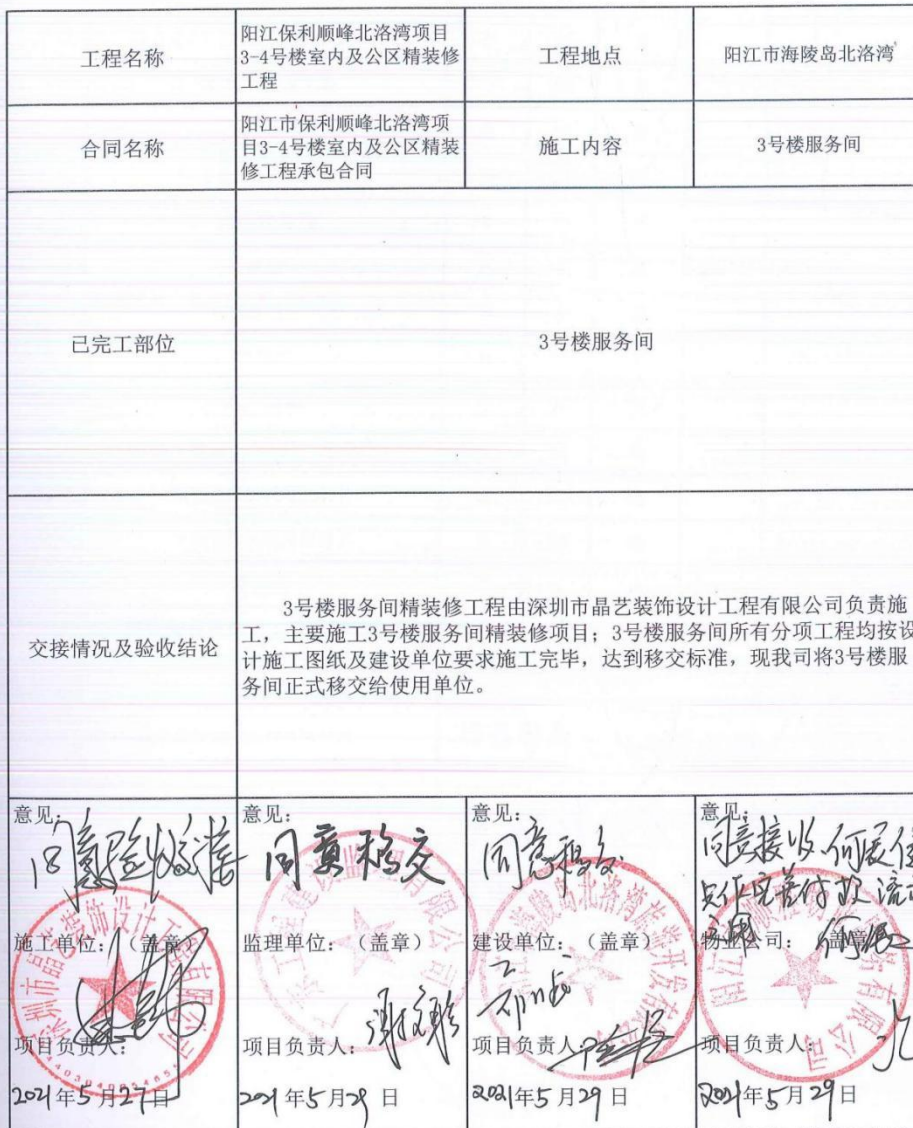 工程名称
阳江保利顺峰北洛湾项目
3-4号楼室内及公区精装修
工程
工程地点
阳江市海陵岛北洛湾
合同名称
阳江市保利顺峰北洛湾项
目3-4号楼室内及公区精装
修工程承包合同
施工内容
3号楼服务间
已完工部位
3号楼服务间
交接情况及验收结论
3号楼服务间精装修工程由深圳市晶艺装饰设计工程有限公司负责施
工，主要施工3号楼服务间精装修项目；3号楼服务间所有分项工程均按设
计施工图纸及建设单位要求施工完毕，达到移交标准，现我司将3号楼服
务间正式移交给使用单位。
意见：
同意验收移接
深圳市晶艺装饰设计工程有限公司
施工单位：（盖章）
项目负责人：
2021年5月27日
意见：
同意移交
监理单位：（盖章）
项目负责人：
2021年5月29日
意见：
同意移交
建设单位：（盖章）
项目负责人：
2021年5月29日
意见：
同意接收
物业公司：（盖章）
项目负责人：
2021年5月29日